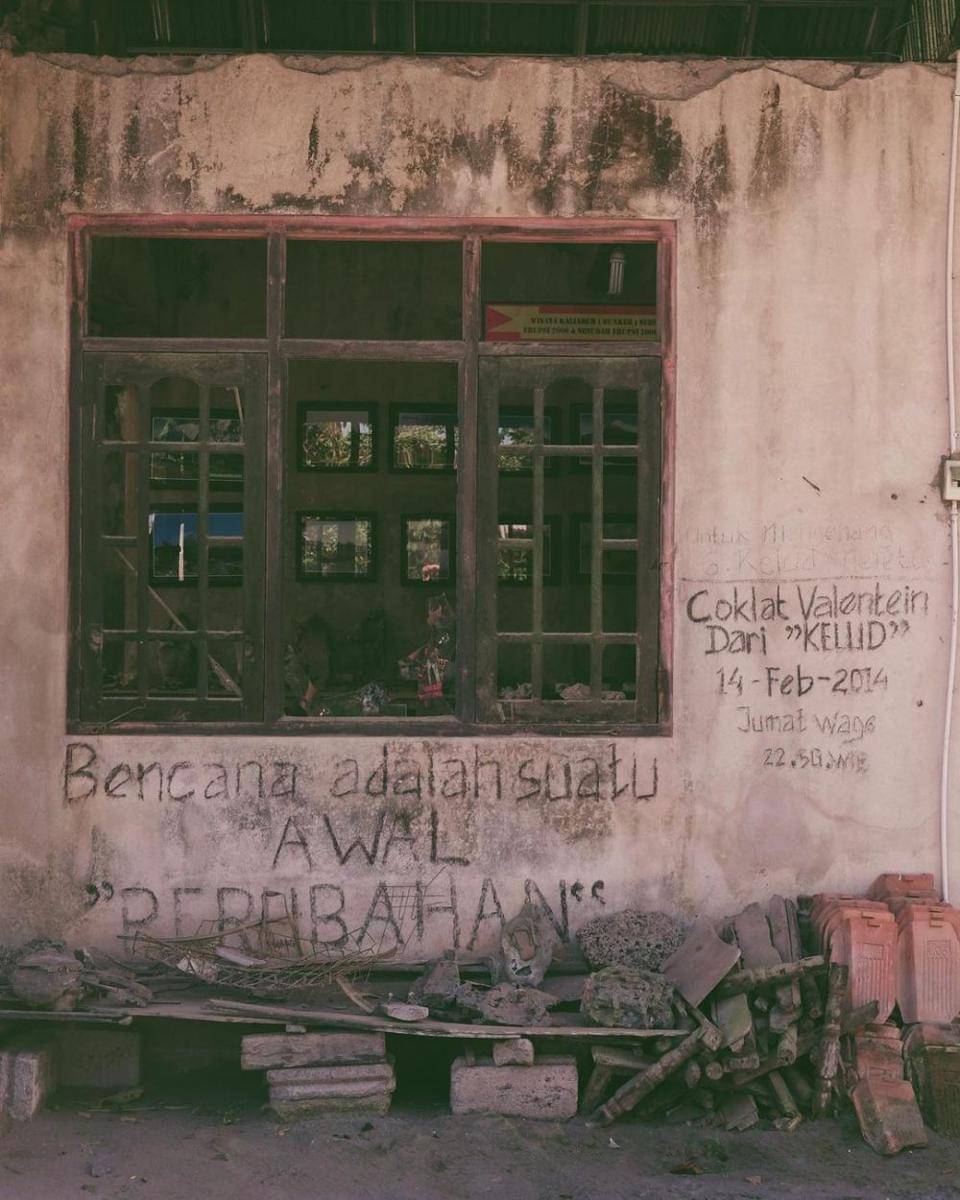 WISATA KALIADEM ( BUNKER )
ERUPSI 2006 & SESUDAH ERUPSI
Untuk Mengenang
G. Kelud
Coklat Valentein
Dari "KELUD"
14-Feb-2014
Jumat Wage
22.50.WIB
Bencana adalah suatu
AWAL
"PERUBAHAN"